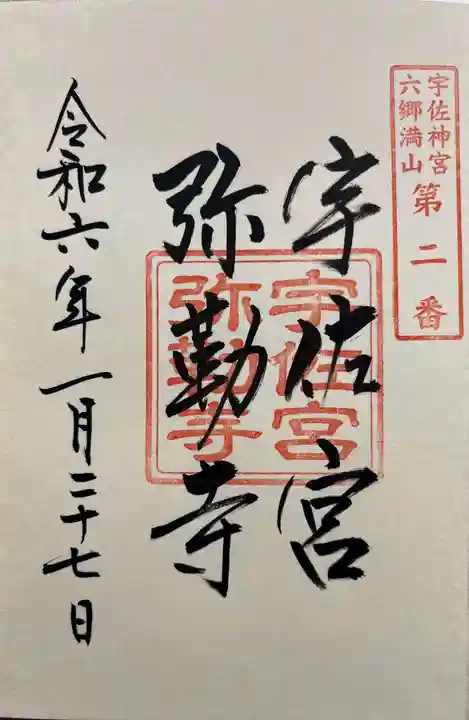 宇佐神宮
六郷満山
第二番
宇佐宮
弥勒寺
宇佐宮
弥勒寺
令和六年一月二十七日